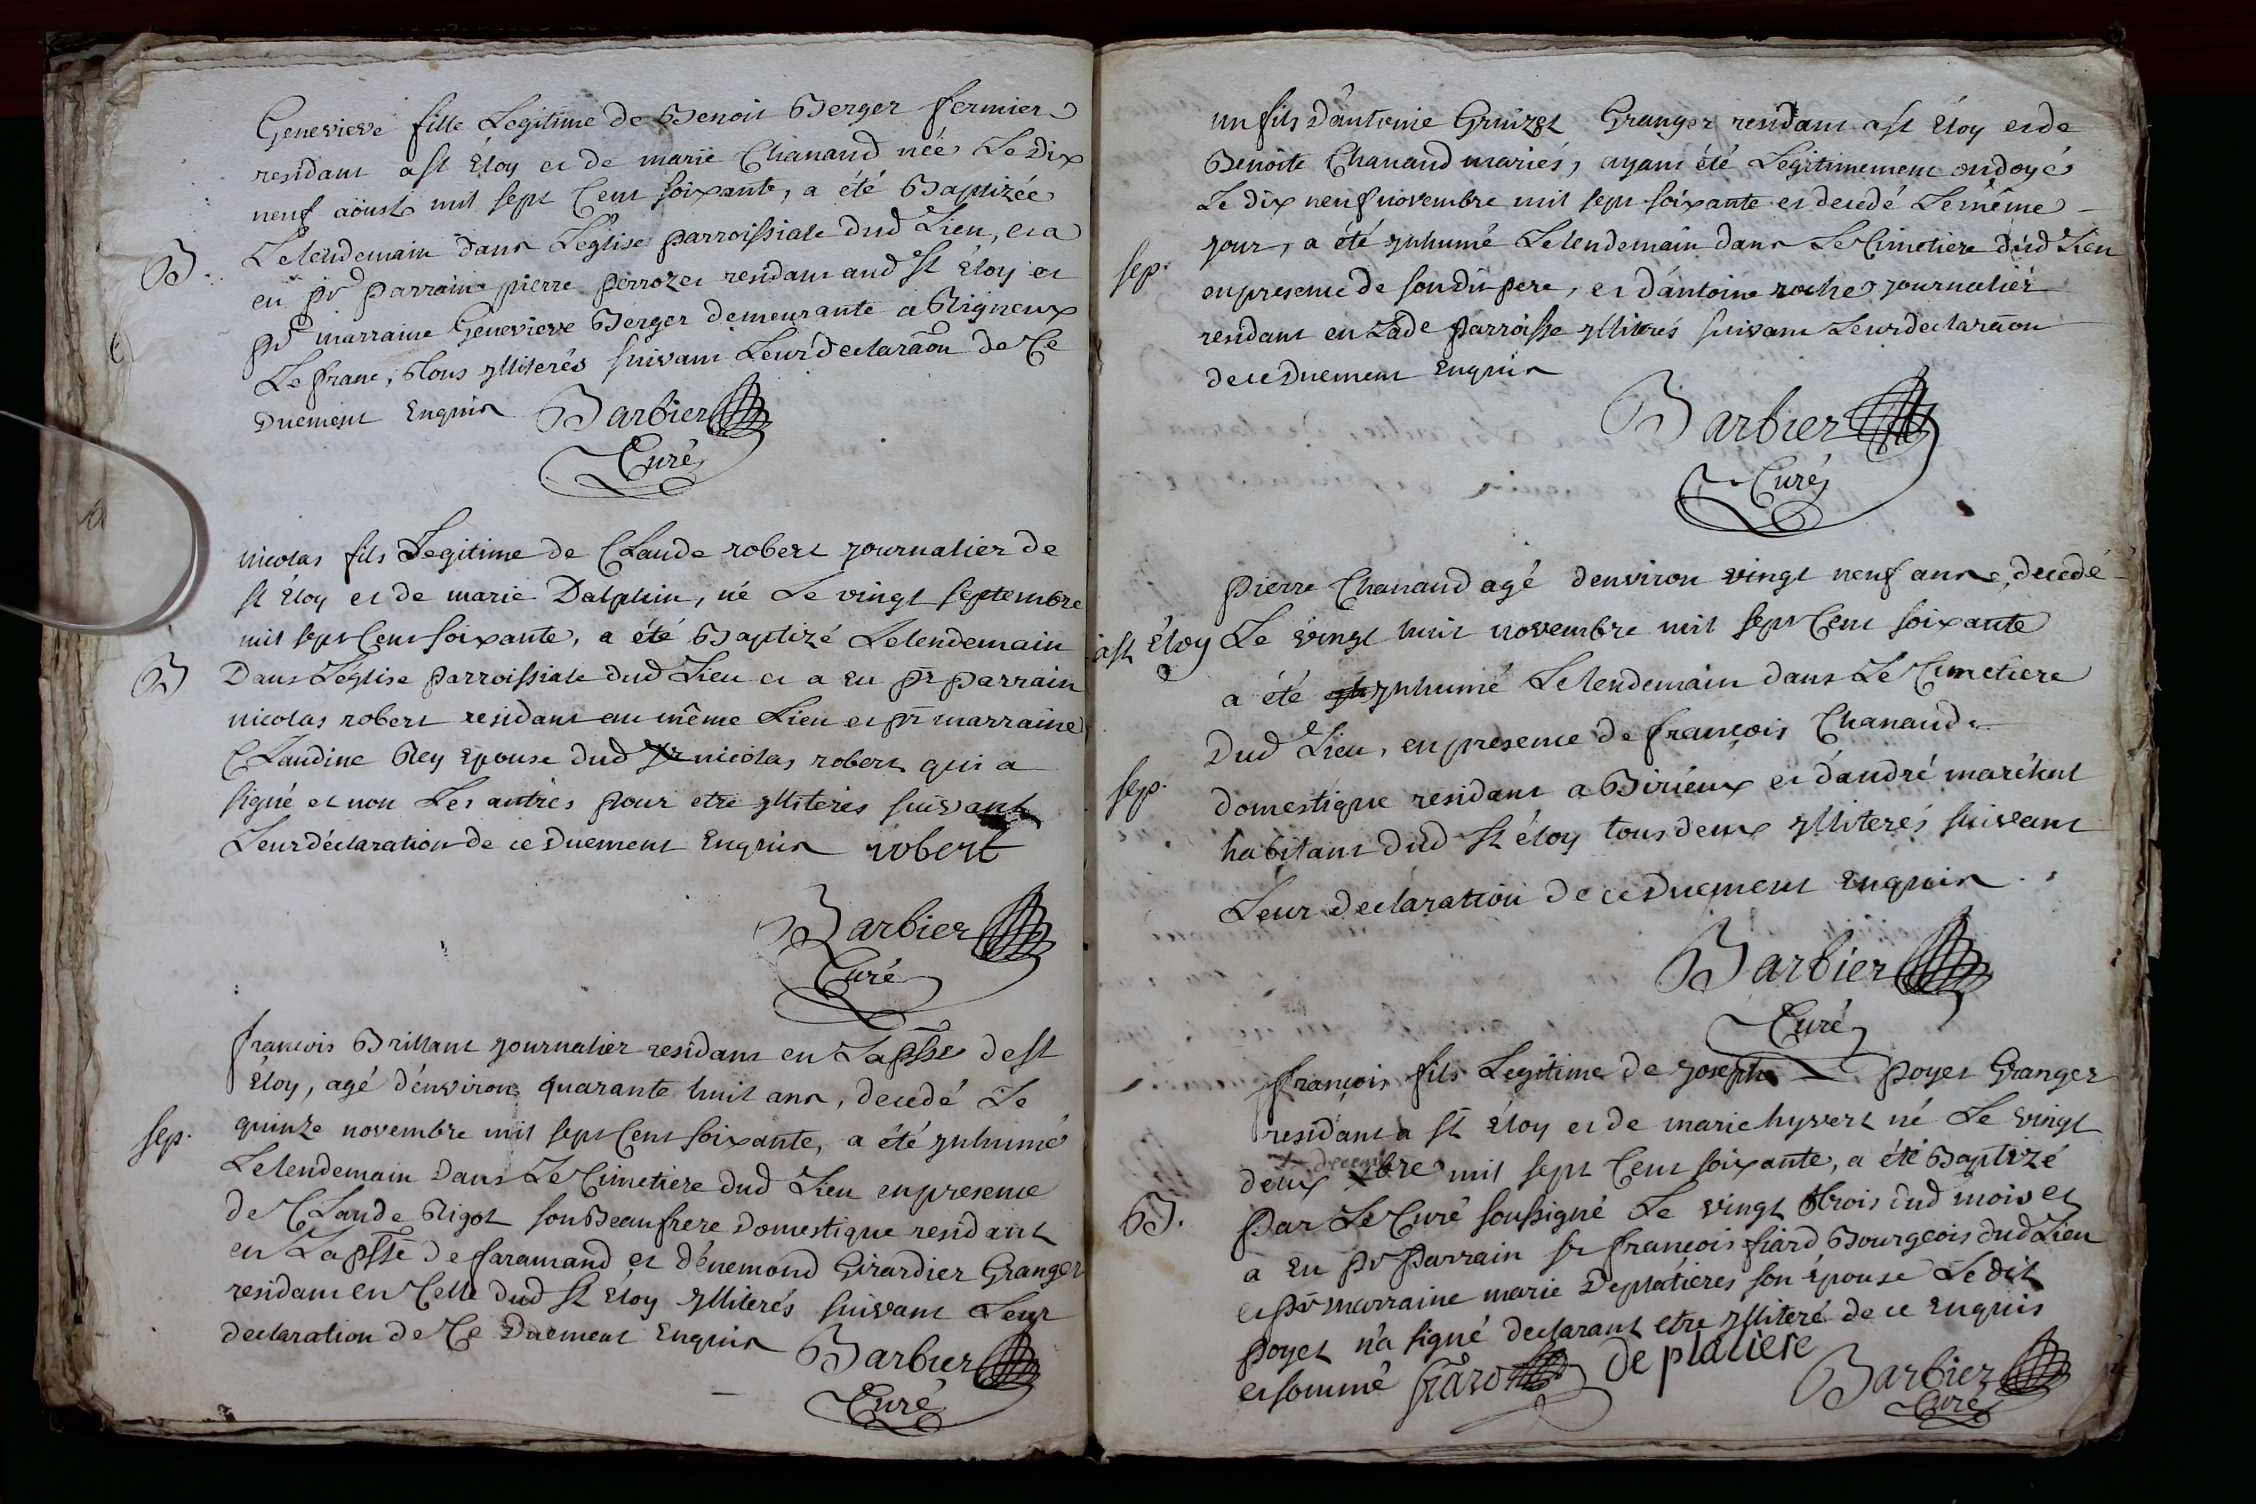 Genevieve fille Legitime de Benoit Berger fermier
residant a st Éloy et de marie Chanand née Le dix
neuf aoust mil sept Cent soixante, a été Baptizée
B.
Le lendemain dans L'église parroissiale dud Lieu, et a
eu pr parrain pierre perrozet residant aud st Éloy et
pr marraine Genevieve Berger demeurante a Rigneux
Le franc, Tous illiterés suivant Leur declaraon de Ce
Duement Enquis Barbier
Curé
nicolas fils Legitime de Claude robert journalier de
st Éloy et de marie Dalphin, né Le vingt septembre
mil sept Cent soixante, a été Baptizé Le lendemain
B
Dans L'église parroissiale dud Lieu et a Eu pr parrain
nicolas robert residant au même Lieu et pr marraine
Claudine Rey Epouse dud nicolas robert qui a
signé et non Les autres pour etre illiterés suivant
Leur déclaration de ce Duement Enquis robert
Barbier
Curé
françois Brillant journalier residant en La psse de st
Éloy, agé d'environ quarante huit ans, decedé Le
sep.
quinze novembre mil sept Cent soixante, a été inhumé
Le lendemain Dans Le Cimetiere dud Lieu en presence
de Claude Rigot son Beaufrere Domestique residant
en La psse de faramand et d'énemond Girardier Granger
residant en Celle dud st Éloy illiterés suivant Leur
declaration de Ce Duement Enquis Barbier
Curé
un fils d'antoine Granger residant a st Éloy et de
Benoite Chanand mariés, ayant été Legitimement ondoyé
Le dix neuf novembre mil sept soixante et decedé Le même
sep.
jour, a été inhumé Le lendemain dans Le Cimetiere dud Lieu
en presence de son dit pere, et d'antoine roche journalier
residant en Lade parroisse illiterés suivant Leur declaraon
de ce Duement Enquis
Barbier
Curé
pierre Chanand agé d'environ vingt neuf ans, decedé
a st Éloy Le vingt huit novembre mil sept Cent soixante
a été inhumé Le lendemain dans Le Cimetiere
Dud Lieu, en presence de françois Chanand
sep.
domestique residant a Birieux et d'andré maréchal
habitant dud st éloy tous deux illiterés suivant
Leur declaration de ce Duement Enquis
Barbier
Curé
françois fils Legitime de joseph poyet Granger
residant a st Éloy et de marie hyvert né Le vingt
decembre
deux xbre mil sept Cent soixante, a été Baptizé
B.
par Le Curé soussigné Le vingt trois dud mois et
a Eu pr parrain sr françois fiard Bourgeois dud Lieu
et pr marraine marie Deplatieres son épouse Le dit
poyet n'a signé declarant etre illiteré de ce Enquis
et sommé fiard de platiere Barbier
Curé